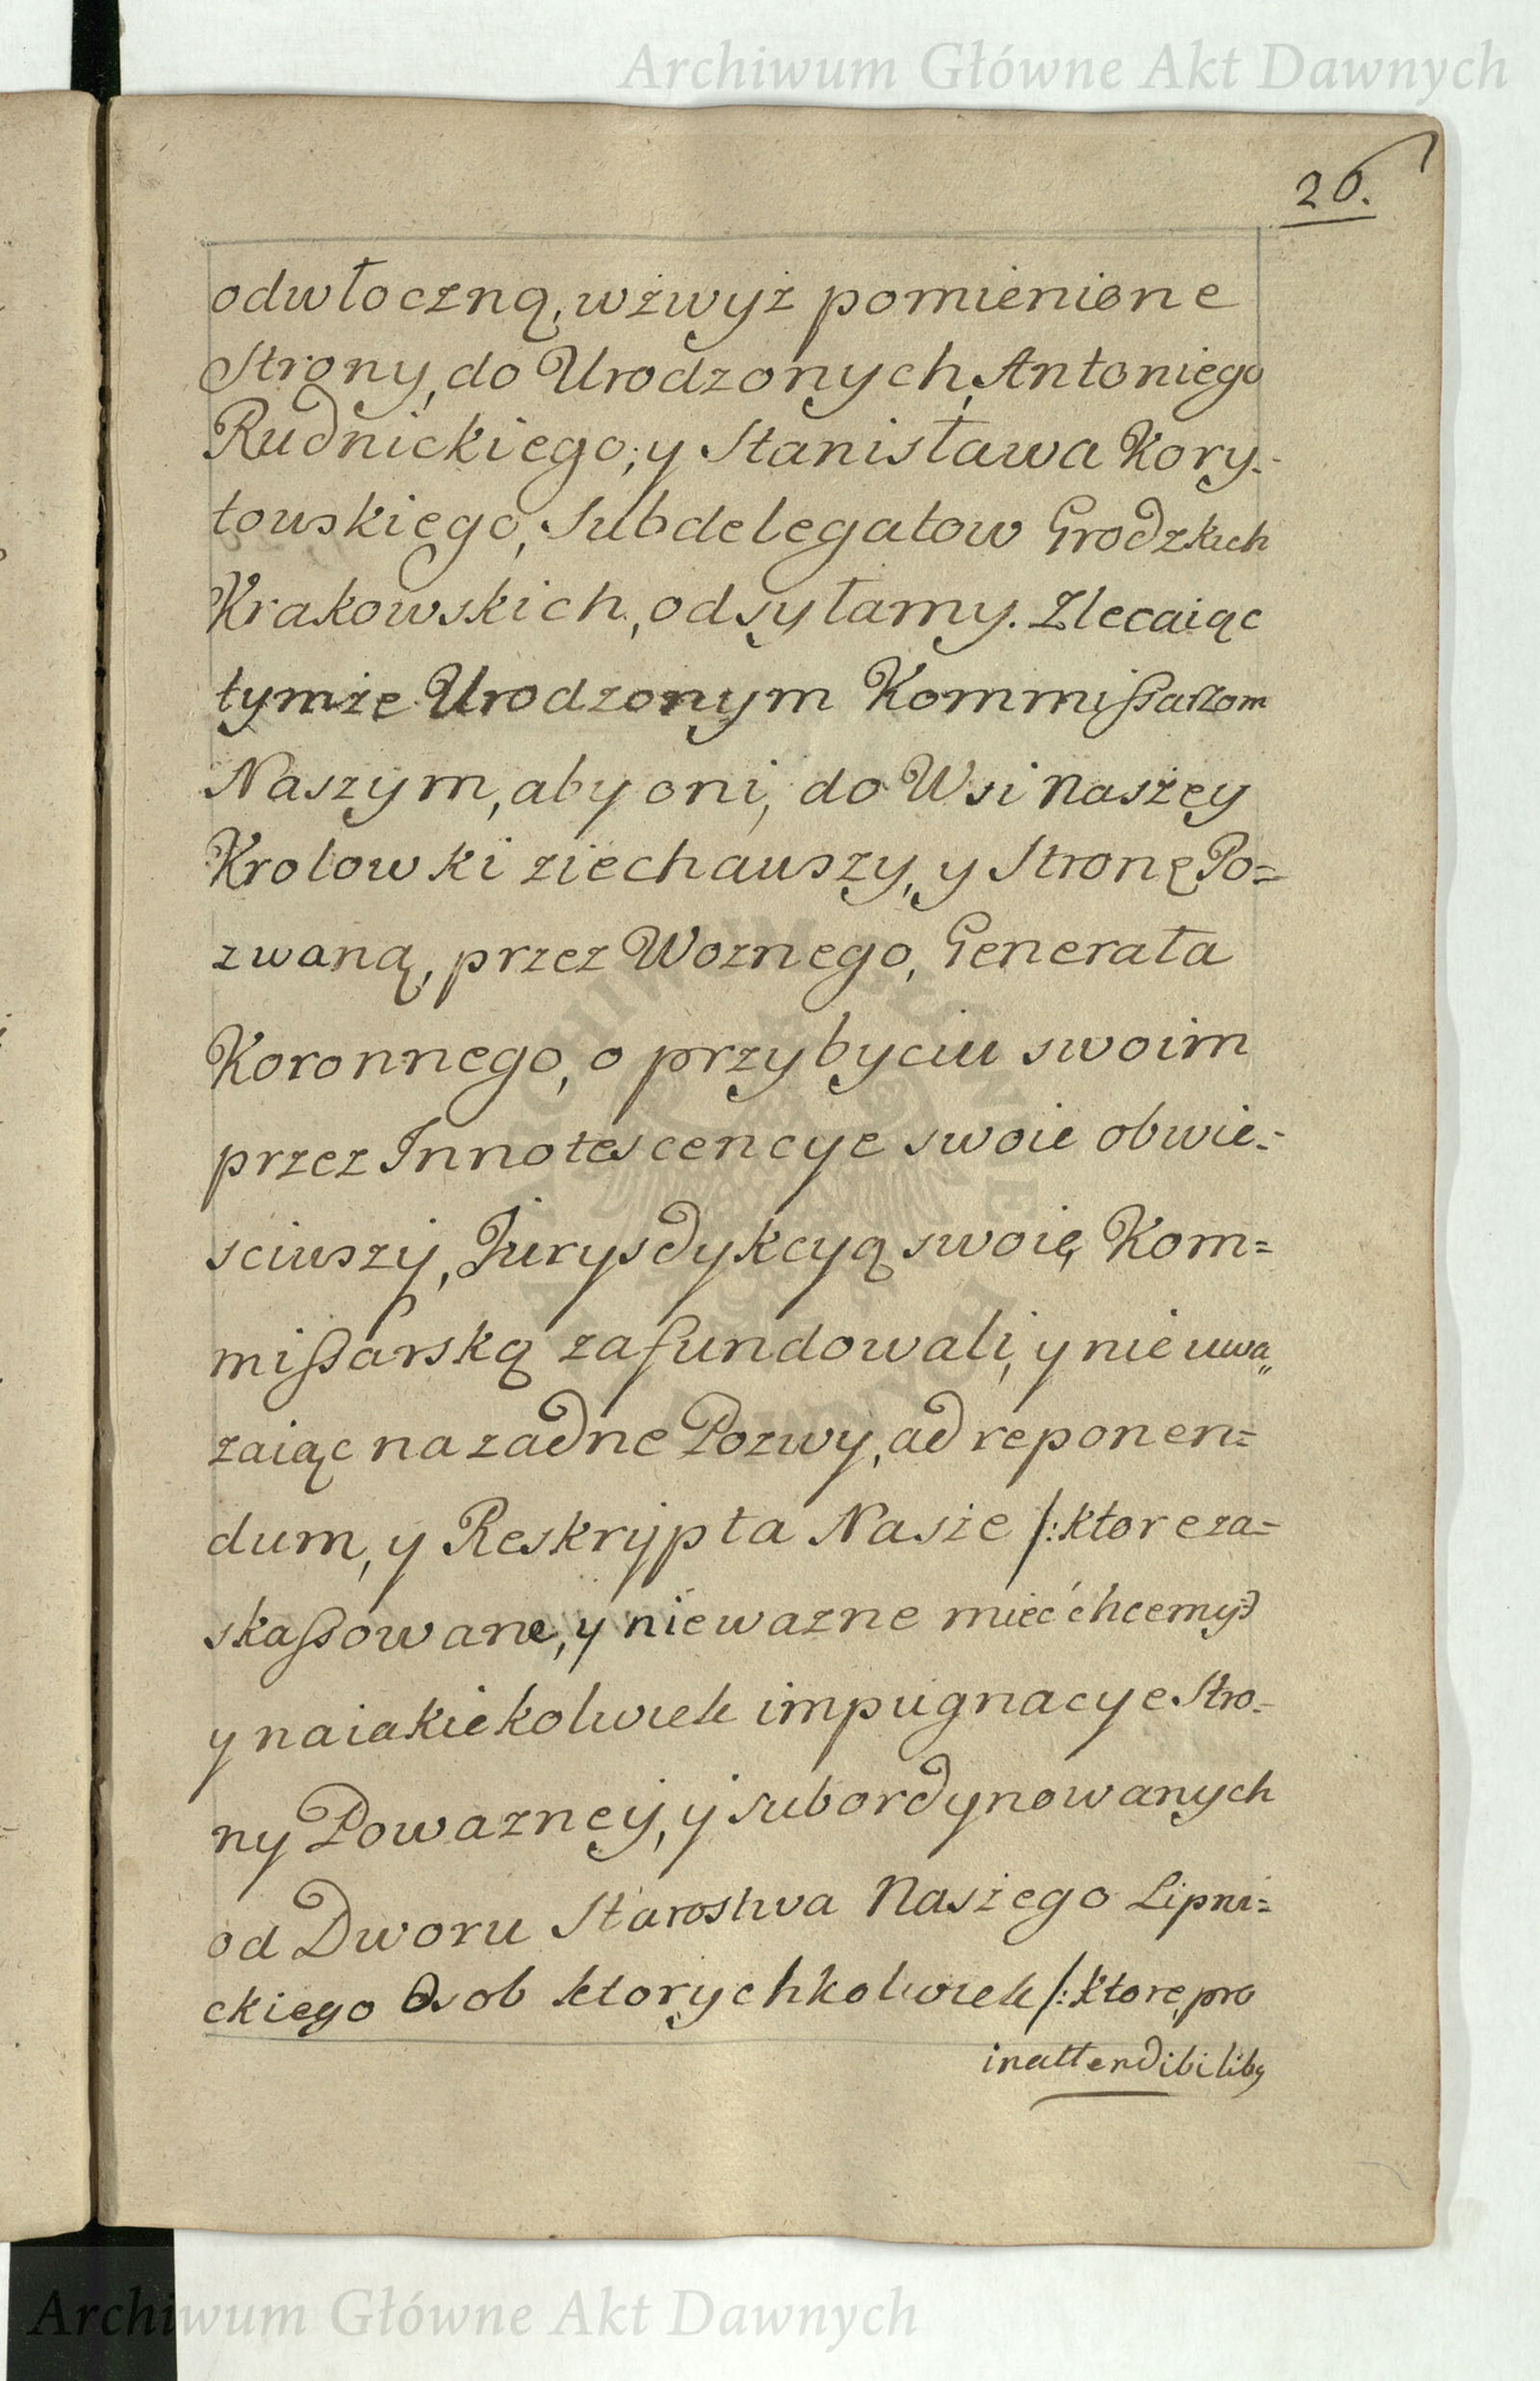 Archiwum Główne Akt Dawnych
26.
odwłoczną, wżwyż pomienione
Strony, do Urodzonych, Antoniego
Rudnickiego, y Stanisława Kory=
towskiego, Subdelegatow Grodzkich
Krakowskich, odsyłamy. Zlecaiąc
tymże Urodzonym Kommißarzom
Naszym, aby oni, do Wsi Naszey
Krolowki ziechawszy, y Stronę Po=
zwaną, przez Woznego, Generała
Koronnego, o przybyciu swoim
przez Innotescencye swoie obwie=
sciwszy, Jurysdykcyą swoię Kom=
mißarską zafundowali, y nie uwa„
zaiąc na zadne Pozwy, ad reponen=
dum, y Reskrypta Nasze /: ktore za=
skaßowane, y niewazne mieć chcemy :/
y na iakiekolwiek impugnacye Stro=
ny Powazney, y subordynowanych
od Dworu Starostwa Naszego Lipni=
ckiego Osob ktorychkolwiek /: ktore, pro
inattendibiliby
ARCHIWUM GŁÓWNE AKT DAWNYCH
Archiwum Główne Akt Dawnych